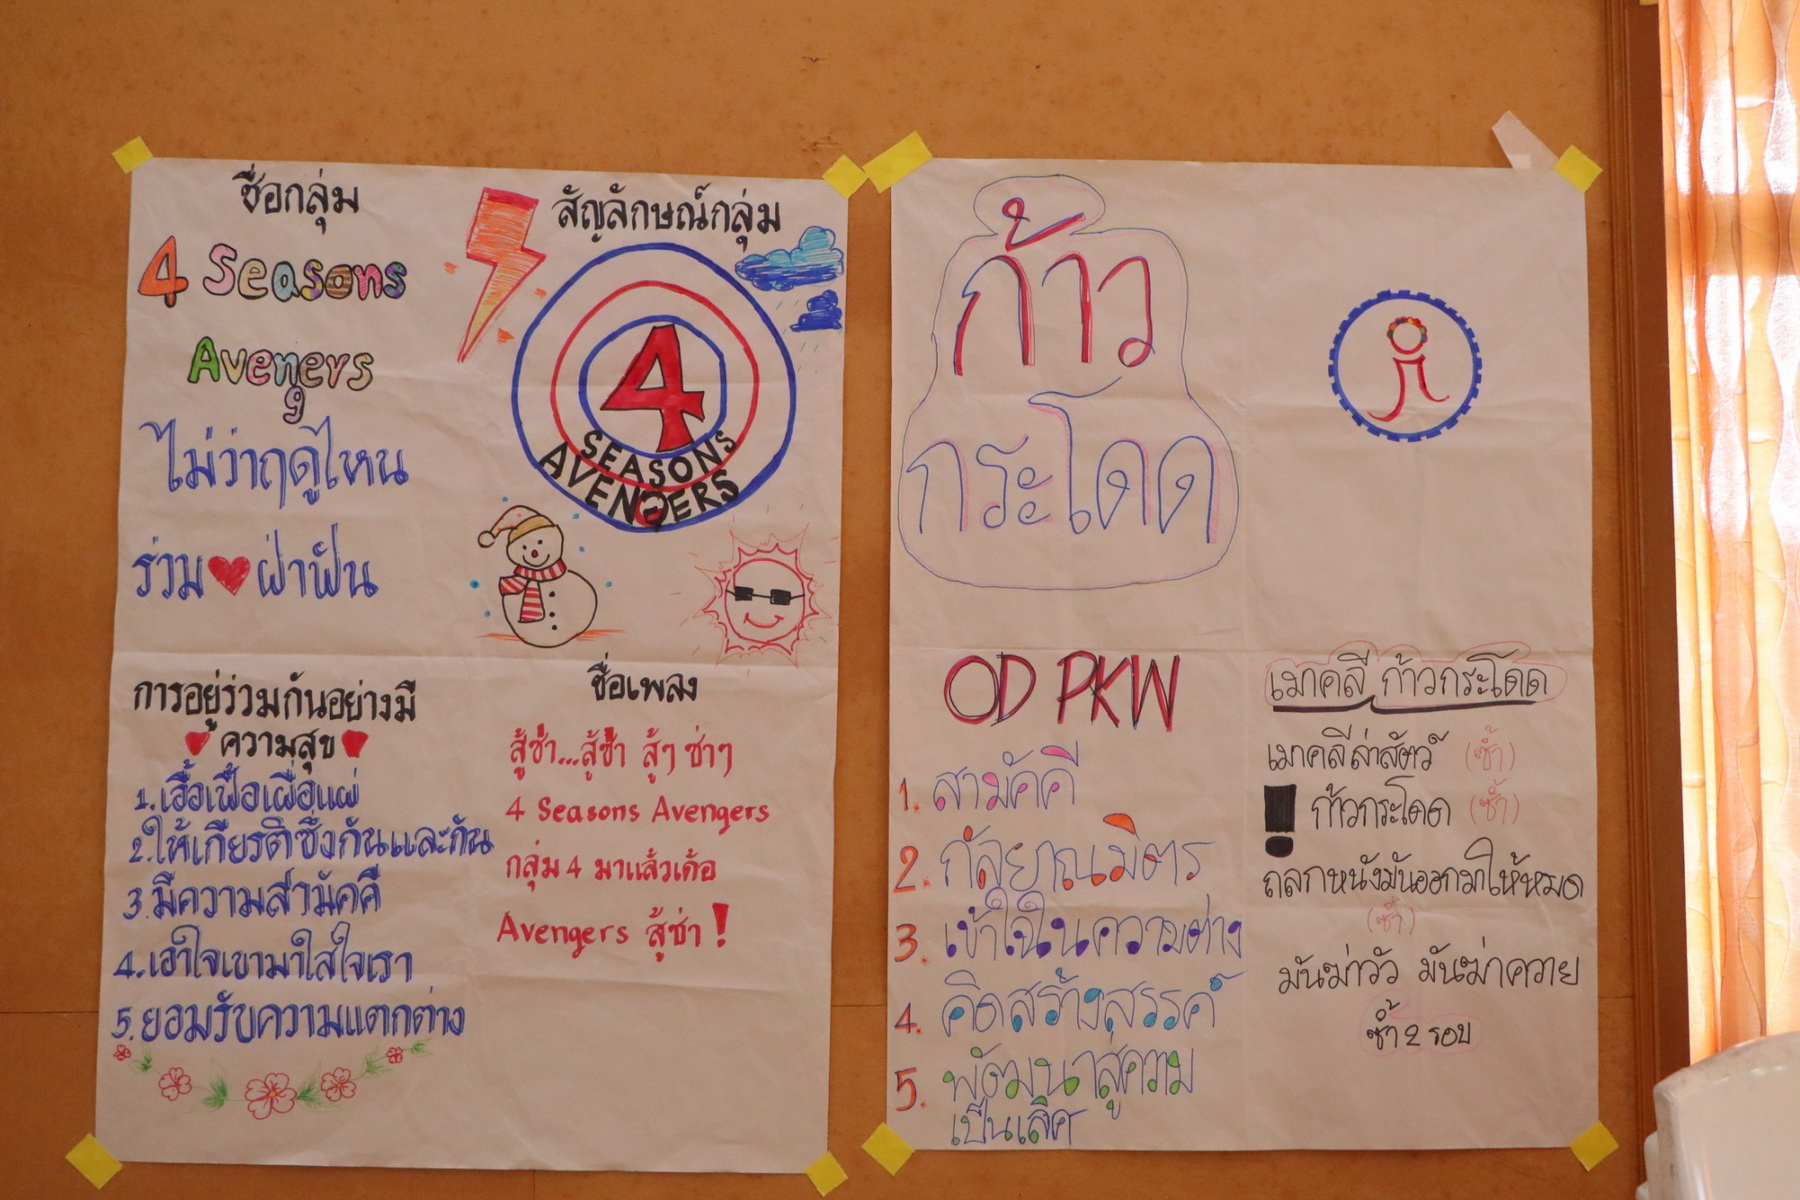 ชื่อกลุ่ม
4 Seasons
Avengers
ไม่ว่าฤดูไหน
ร่วม ฝ่าฟัน
สัญลักษณ์กลุ่ม
4
SEASONS
AVENGERS
การอยู่ร่วมกันอย่างมี
ความสุข
1.เอื้อเฟื้อเผื่อแผ่
2.ให้เกียรติซึ่งกันและกัน
3.มีความสามัคคี
4.เอาใจเขามาใส่ใจเรา
5.ยอมรับความแตกต่าง
ชื่อเพลง
สู้ซ่า...สู้ซ่า สู้ๆ ซ่าๆ
4 Seasons Avengers
กลุ่ม 4 มาแล้วเด้อ
Avengers สู้ซ่า !
ก้าว
กระโดด
OD PKW
1. สามัคคี
2. กัลยาณมิตร
3. เข้าใจในความต่าง
4. คิดสร้างสรรค์
5. พัฒนาสู่ความ
เป็นเลิศ
เมาคลี ก้าวกระโดด
เมาคลีล่าสัตว์ (ซ้ำ)
! ก้าวกระโดด (ซ้ำ)
ถลกหนังมันออกมาให้หมด
(ซ้ำ)
มันฆ่าวัว มันฆ่าควาย
ซ้ำ 2 รอบ